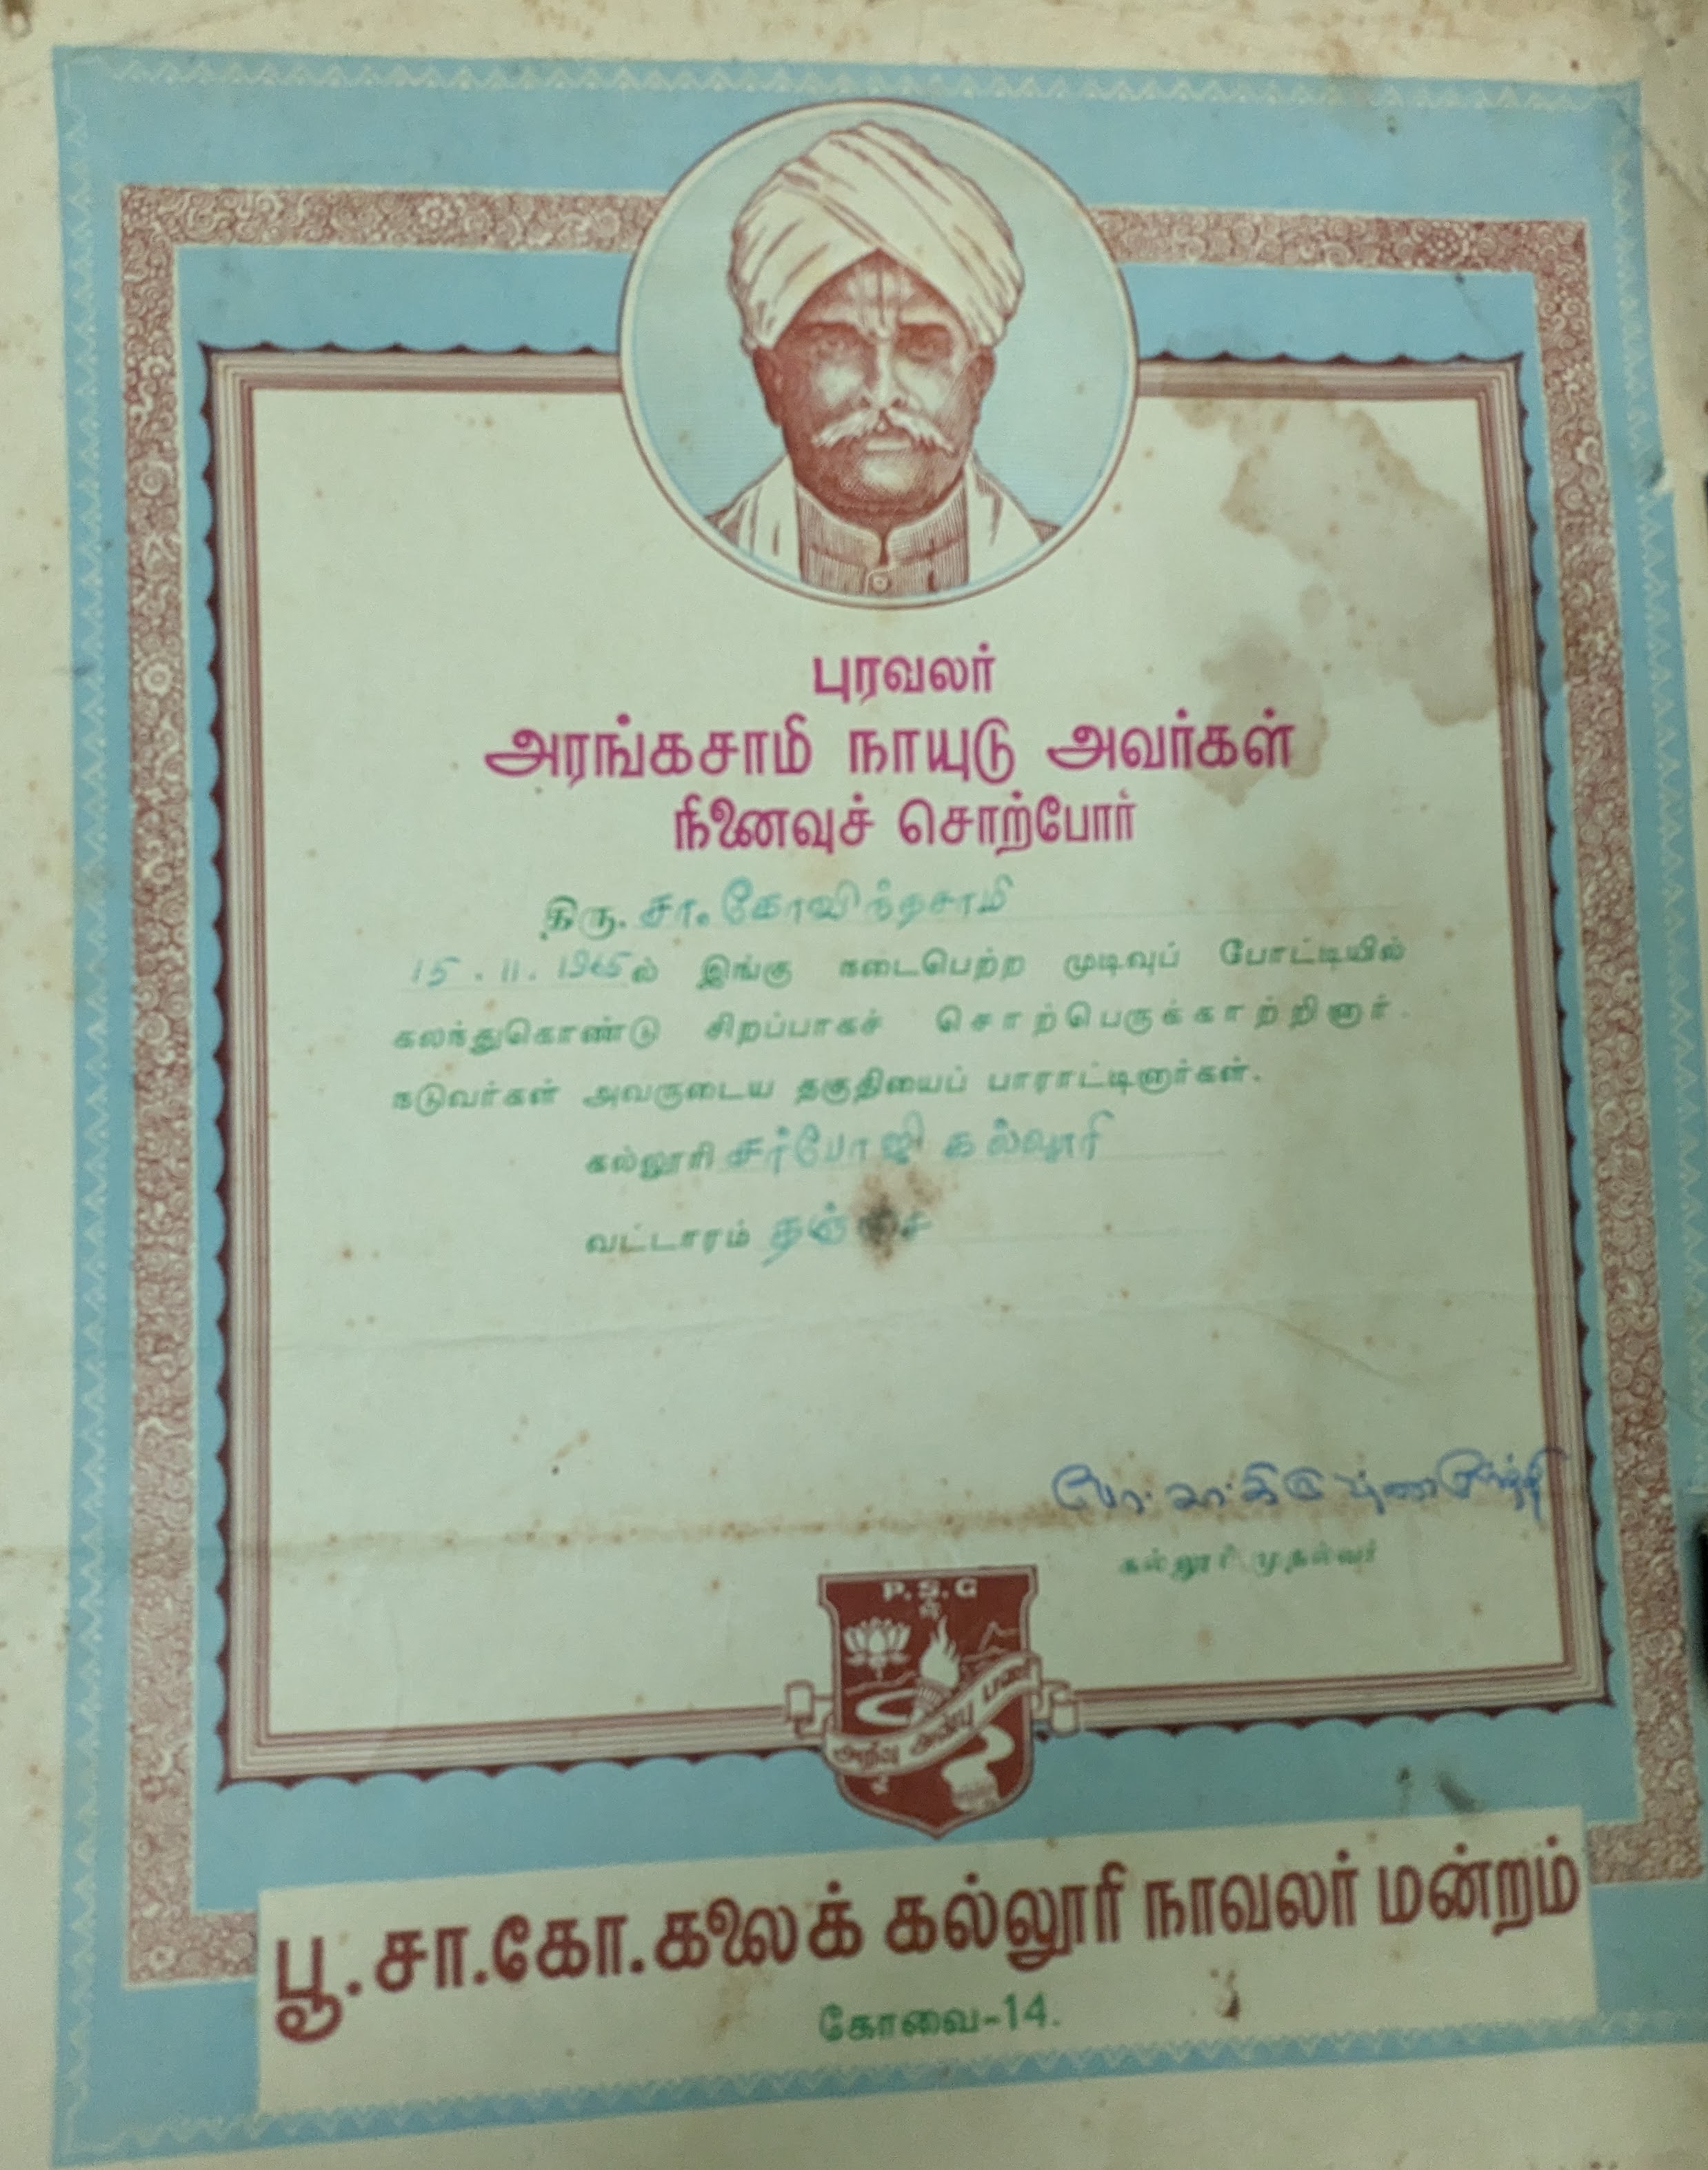 புரவலர்
அரங்கசாமி நாயுடு அவர்கள்
நினைவுச் சொற்போர்
திரு. சா. கோவிந்தசாமி
15.11.1965ல் இங்கு நடைபெற்ற முடிவுப் போட்டியில்
கலந்துகொண்டு சிறப்பாகச் சொற்பெருக்காற்றினார்.
நடுவர்கள் அவருடைய தகுதியைப் பாராட்டினார்கள்.
கல்லூரி சர்போஜி கல்லூரி
வட்டாரம்
கல்லூரி முதல்வர்
P.S.G
அறிவு அன்பு பணி
பூ.சா.கோ.கலைக் கல்லூரி நாவலர் மன்றம்
கோவை-14.